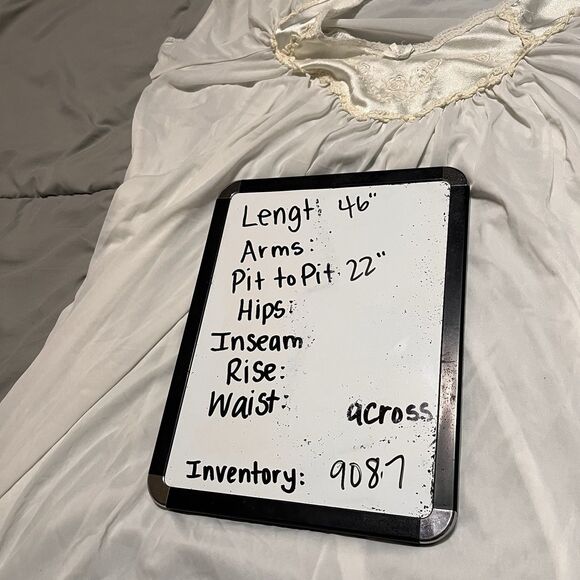 Lengt: 46"
Arms:
Pit to Pit 22"
Hips:
Inseam
Rise:
Waist: across
Inventory: 9087